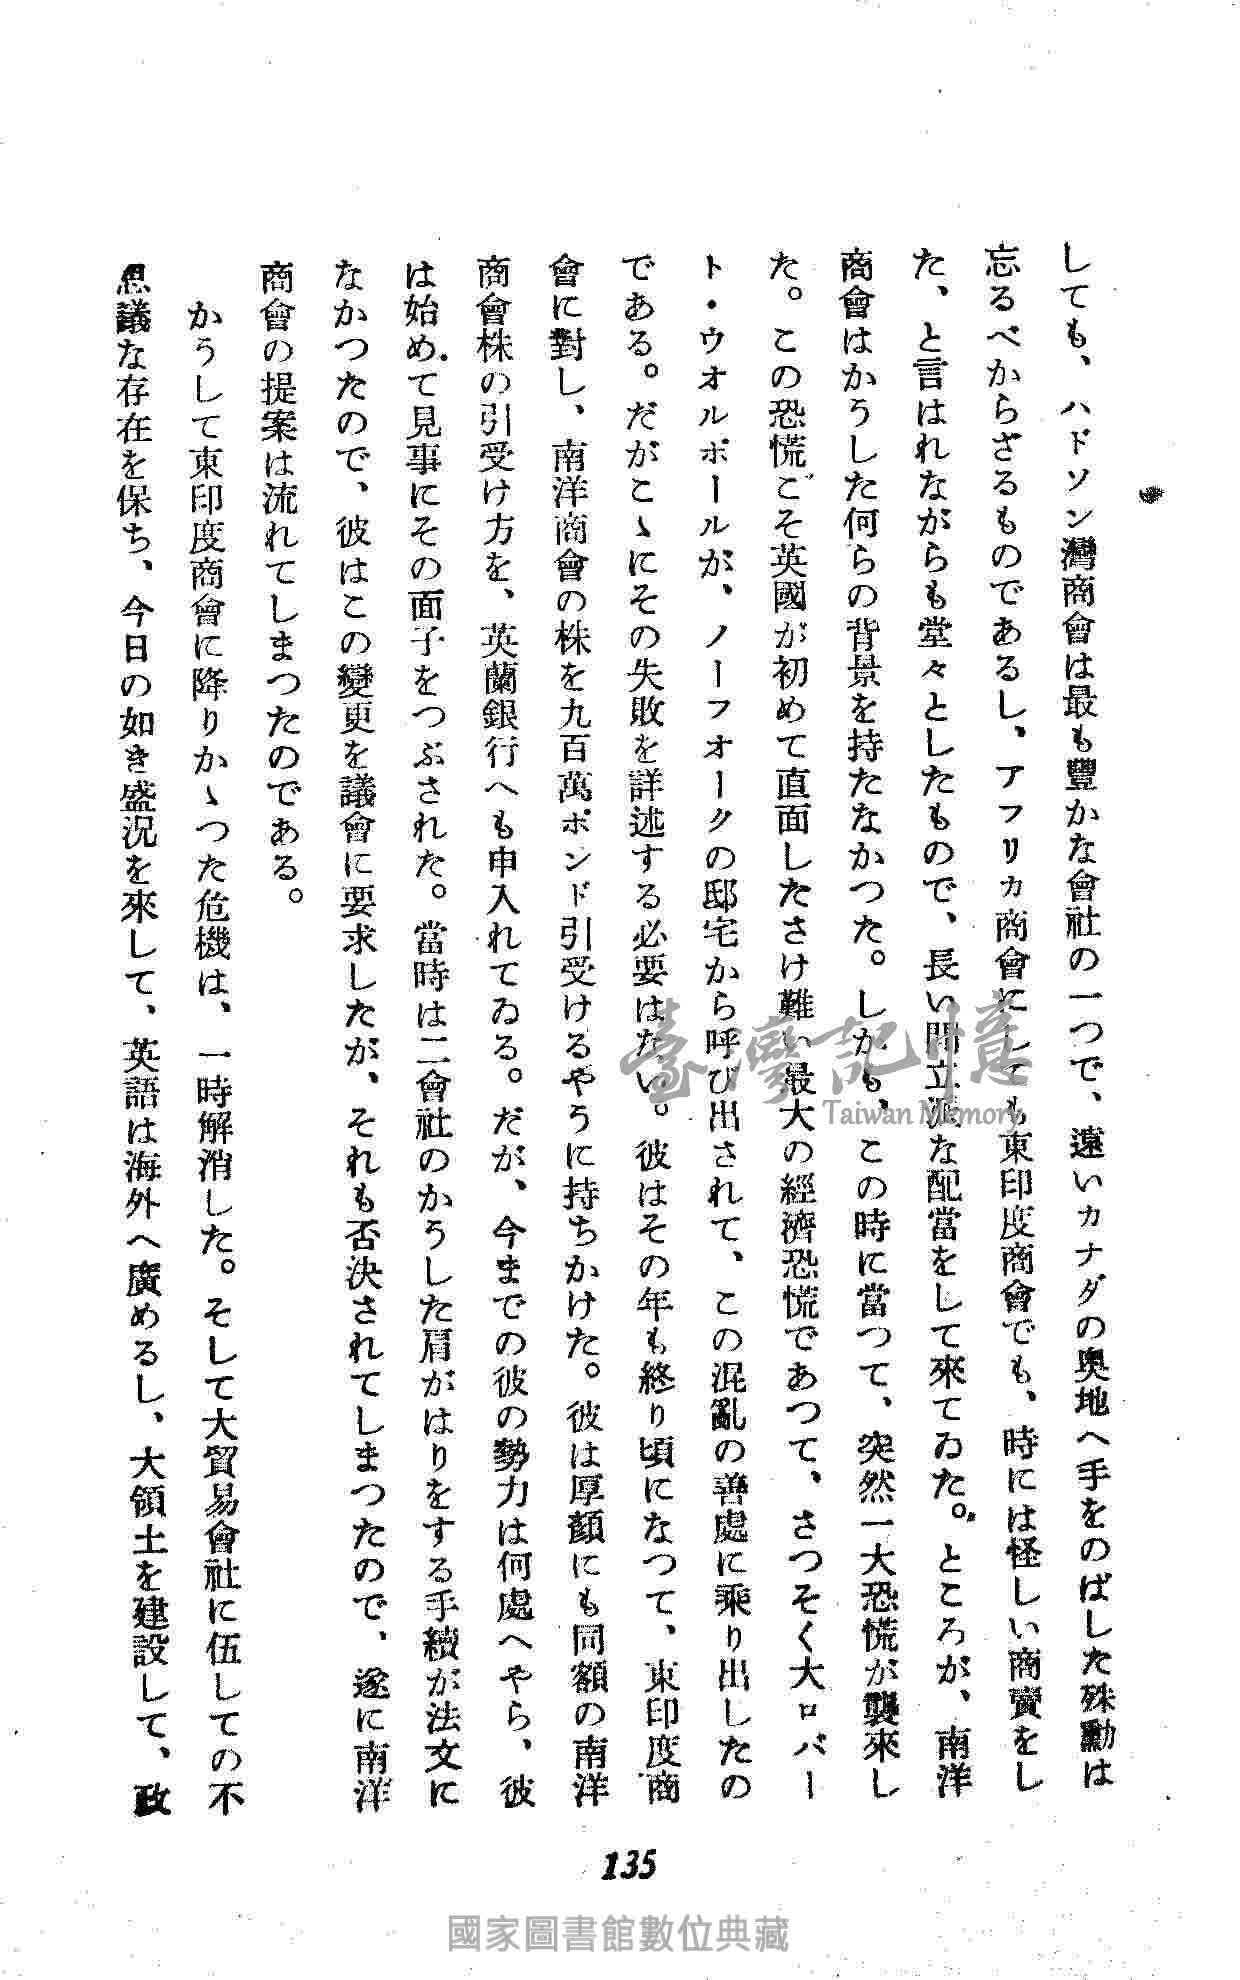 しても、ハドソン灣商會は最も豐かな會社の一つで、遠いカナダの奧地へ手をのばした殊勳は
忘るべからざるものであるし、アフリカ商會にしても東印度商會でも、時には怪しい商賣をし
た、と言はれながらも堂々としたもので、長い間立派な配當をして來てゐた。ところが、南洋
商會はかうした何らの背景を持たなかつた。しかも、この時に當つて、突然一大恐慌が襲來し
た。この恐慌こそ英國が初めて直面したさけ難い最大の經濟恐慌であつて、さつそく大ロバー
ト・ウオルポールが、ノーフオークの邸宅から呼び出されて、この混亂の善處に乘り出したの
である。だがこゝにその失敗を詳述する必要はない。彼はその年も終り頃になつて、東印度商
會に對し、南洋商會の株を九百萬ポンド引受けるやうに持ちかけた。彼は厚顏にも同額の南洋
商會株の引受け方を、英蘭銀行へも申入れてゐる。だが、今までの彼の勢力は何處へやら、彼
は始めて見事にその面子をつぶされた。當時は二會社のかうした肩がはりをする手續が法文に
なかつたので、彼はこの變更を議會に要求したが、それも否決されてしまつたので、遂に南洋
商會の提案は流れてしまつたのである。
かうして東印度商會に降りかゝつた危機は、一時解消した。そして大貿易會社に伍しての不
思議な存在を保ち、今日の如き盛況を來して、英語は海外へ廣めるし、大領土を建設して、政
135
臺灣記憶
Taiwan Memory
國家圖書館數位典藏